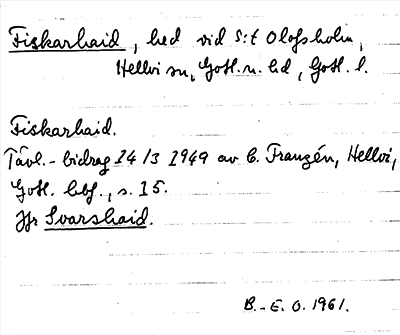 Fiskarhaid, hed vid S:t Olofsholm,
Hellvi sn, Gotl. n. hd, Gotl. l.
Fiskarhaid.
Tävl.-bidrag 14/3 1949 av C. Franzén, Hellvi,
Gotl. , s. 15.
Jfr Svarshaid.
B.-E. O. 1961.